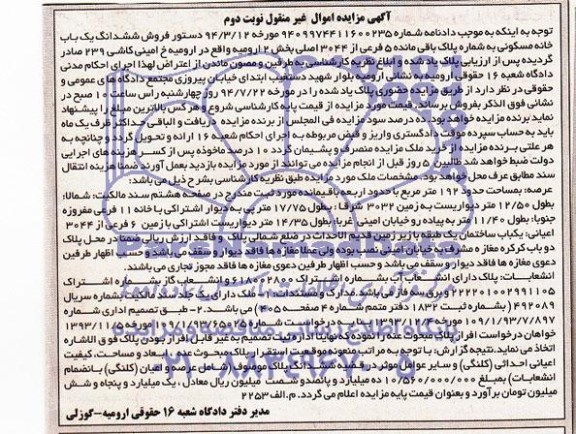 آگهی مزایده اموال غیر منقول نوبت دوم
توجه به اینکه به موجب دادنامه شماره ۹۴۰۹۹۷۴۴۱۱۶۰۰۲۳۵ مورخه ۹۴/۳/۱۲ دستور فروش ششدانگ یک باب
خانه مسکونی به شماره پلاک باقی مانده ۵ فرعی از ۳۰۴۴ اصلی بخش ۲ ارومیه واقع در ارومیه خ امینی کاشی ۲۳۹ صادر
گردیده پس از ارزیابی پلاک یاد شده و ابلاغ نظریه کارشناسی به طرفین و مصون ماندن از اعتراض لهذا اجرای احکام مدنی
دادگاه شعبه ۱۶ حقوقی ارومیه به نشانی ارومیه بلوار شهید دستغیب ابتدای خیابان پیروزی مجتمع دادگاه های عمومی و
حقوقی در نظر دارد از طریق مزایده حضوری پلاک یاد شده را در مورخه ۹۴/۷/۲۲ روز چهارشنبه راس ساعت ۱۰ صبح در
نشانی فوق الذکر بفروش برساند. قیمت مورد مزایده از قیمت پایه کارشناسی شروع و هر کس بالاترین مبلغ را پیشنهاد
نماید برنده مزایده خواهد بود ده درصد سود مزایده فی المجلس از برنده مزایده دریافت و الباقی حداکثر ظرف یک ماه
باید به حساب سپرده موقت دادگستری واریز و فیش مربوطه به اجرای احکام شعبه ۱۶ ارائه و تحویل گردد و چنانچه به
هر علتی برنده مزایده از خرید ملک مزایده منصرف و پشیمان گردد ۱۰ درصد ماخوذه پس از کسر هزینه های اجرایی
دولت ضبط خواهد شد طالبین ۵ روز قبل از انجام مزایده می توانند از مورد مزایده بازدید بعمل آورند ضمنا هزینه انتقال
سند مطابق عرف محل خواهد بود. مشخصات ملک مورد مزایده طبق نظریه کارشناسی بشرح ذیل می باشد:
عرصه: بمساحت حدود ۱۹۲ متر مربع با حدود اربعه باقیمانده مورد ثبت مندرج در صفحه هشتم سند مالکیت: شمالا:
بطول ۱۲/۵۰ متر دیواریست به زمین ۳۰۳۲ شرقا: بطول ۱۷/۷۵ متر پی به دیوار اشتراکی با خانه ۱۱ فرعی مفروزه
جنوبا: بطول ۱۱/۴۰ متر به پیاده رو خیابان امینی غربا: بطول ۱۴/۳۵ متر دیواریست اشتراکی با زمین ۶ فرعی از ۳۰۴۴
اعیانی: یکباب ساختمان یک طبقه با زیر زمین قدیم الاحداث در ضلع شمالی پلاک و فاقد ارزش ریالی ضمنا در محل پلاک
دو باب کرکره مغازه مشرف به خیابان امینی نصب بوده ولی عملا مغازه ها فاقد دیوار و سقف می باشد و حسب اظهار طرفین
دعوی مغازه ها فاقد دیوار و سقف می باشد و حسب اظهار طرفین دعوی مغازه ها فاقد مجوز تجاری می باشند.
انشعابات: پلاک دارای انشعاب آب بشماره اشتراک ۶۱۸۰۰۲۸۰۰ و انشعاب گاز بشماره اشتراک
۲۲۲۲۰۱۰۰۲۹۹۱۱۰۵ و برق سه فاز می باشد. مدارک و مستندات: ۱- ملک دارای یک جلد سند مالکیت بشماره سریال
(۴۹۲۰۸۹ بشماره ثبت ۱۸۳۲ دفتر متمم شماره ۴ صفحه ۴۰۵) می باشد. ۲- طبق تصمیم اداری شماره
خواهان درخواست افراز پلاک مبحوث عنه را نموده که نهایتا اداره ثبت تصمیم به غیر قابل افراز بودن پلاک فوق الاشاره
اتخاذ می نماید. نتیجه گزارش: با توجه به مراتب معنونه موقعیت استقرار پلاک مبحوث عنه، ابعاد و مساحت، کیفیت
اعیانی احداثی (کلنگی) و سایر عوامل موثر در قضیه ششدانگ پلاک موصوف (شامل عرصه و اعیان (کلنگی) بانضمام
انشعابات) بمبلغ ۱۰/۵۶۰/۰۰۰/۰۰۰ ده میلیارد و پانصد و شصت میلیون ریال معادل، یک میلیارد و پنجاه و شش
میلیون تومان برآورد و بعنوان قیمت پایه مزایده اعلام می گردد. م.الف ۲۲۵۳
مدیر دفتر دادگاه شعبه ۱۶ حقوقی ارومیه-گوزلی